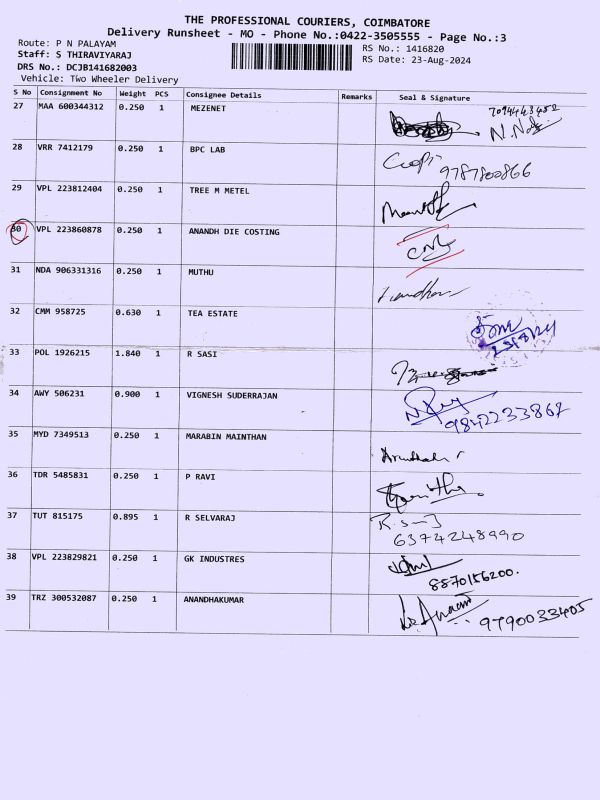 THE PROFESSIONAL COURIERS, COIMBATORE
Delivery Runsheet - MO - Phone No.:0422-3505555 - Page No.:3
Route: P N PALAYAM
Staff: S THIRAVIYARAJ
DRS No.: DCJB141682003
Vehicle: Two Wheeler Delivery
RS No.: 1416820
RS Date: 23-Aug-2024
S No Consignment No Weight PCS Consignee Details Remarks Seal & Signature
27 MAA 600344312 0.250 1 MEZENET
28 VRR 7412179 0.250 1 BPC LAB 9787800866
29 VPL 223812404 0.250 1 TREE M METEL
30 VPL 223860878 0.250 1 ANANDH DIE COSTING
31 NDA 906331316 0.250 1 MUTHU
32 CMM 958725 0.630 1 TEA ESTATE
33 POL 1926215 1.840 1 R SASI
34 AWY 506231 0.900 1 VIGNESH SUDERRAJAN 9842233867
35 MYD 7349513 0.250 1 MARABIN MAINTHAN
36 TDR 5485831 0.250 1 P RAVI
37 TUT 815175 0.895 1 R SELVARAJ 6374248990
38 VPL 223829821 0.250 1 GK INDUSTRES 8870156200.
39 TRZ 300532087 0.250 1 ANANDHAKUMAR 9790033405